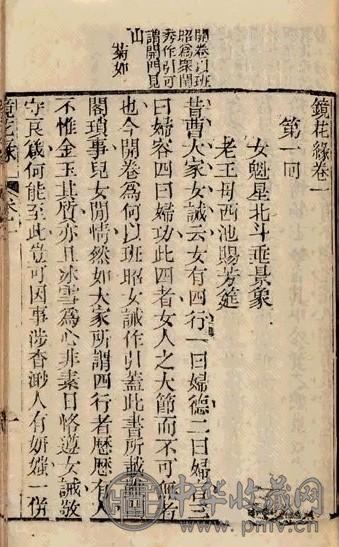 開卷以班
昭為衆閨
秀作引可
謂開門見
山
菊如
鏡花緣卷一
第一回
女魁星北斗垂景象
老王母西池賜芳筵
昔曹大家女誡云女有四行一曰婦德二曰婦言三
曰婦容四曰婦功此四者女人之大節而不可無者
也今開卷為何以班昭女誡作引蓋此書所載雖閨
閣瑣事兒女閒情然如大家所謂四行者歷歷有人
不惟金玉其質亦且冰雪為心非素日恪遵女誡敬
守良箴何能至此豈可因事涉杳渺人有妍媸一併
鏡花緣
中华收藏网